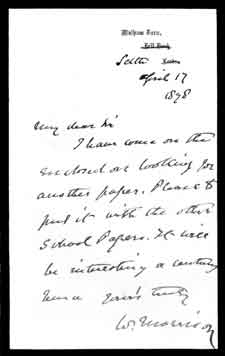 Malham Tarn,
Bell Busk,
Settle Leeds
April 17
1898
My dear Sir
I have come on the
enclosed on looking for
another paper. Please to
put it with the other
School Papers. It will
be interesting a century
hence Yours truly
W. Morrison